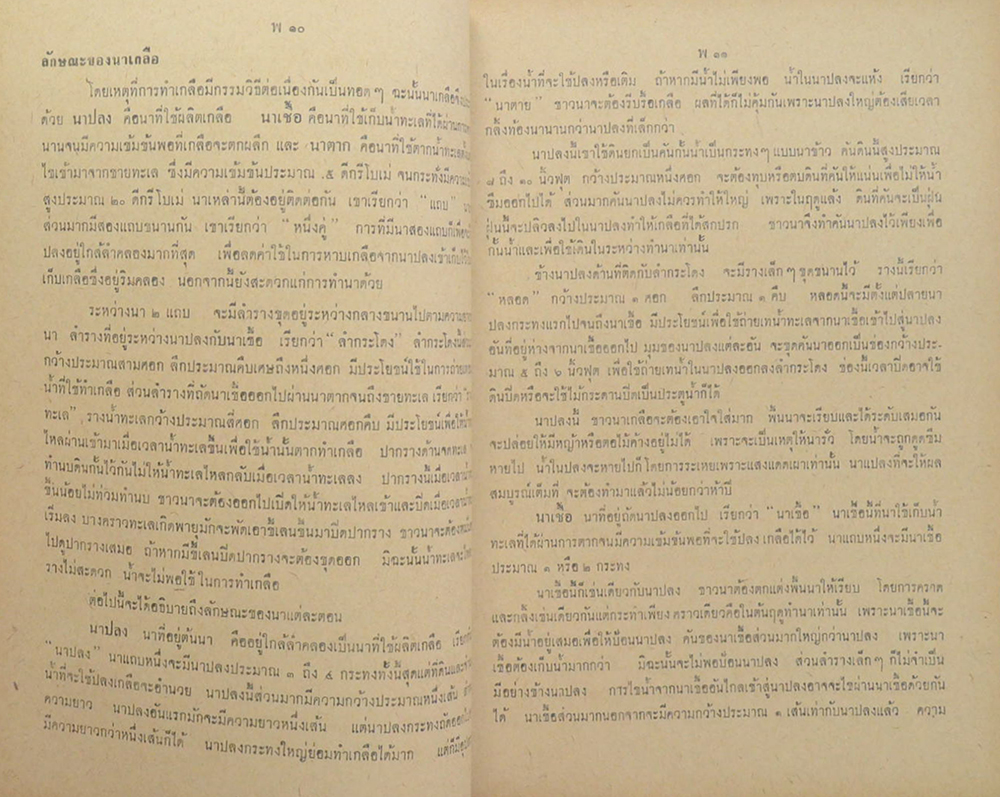 พ ๑๐
ลักษณะของนาเกลือ
โดยเหตุที่การทำเกลือมีกรรมวิธีต่อเนื่องกันเป็นทอดๆ ฉะนั้นนาเกลือจึง
ด้วย นาปลง คือนาที่ใช้ผลิตเกลือ นาเชื้อ คือนาที่ใช้เก็บน้ำทะเลที่ได้ผ่านการ
นานจนมีความเข้มข้นพอที่เกลือจะตกผลึก และ นาตาก คือนาที่ใช้ตากน้ำทะเล
ไขเข้ามาจากชายทะเล ซึ่งมีความเข้มข้นประมาณ .๕ ดีกรีโบเม่ จนกระทั่งมีความ
สูงประมาณ ๒๐ ดีกรีโบเม่ นาเหล่านี้ต้องอยู่ติดต่อกัน เขาเรียกว่า "แถบ"
ส่วนมากมีสองแถบขนานกัน เขาเรียกว่า "หนึ่งคู่" การที่มีนาสองแถบก็เพื่อ
ปลงอยู่ใกล้ลำคลองมากที่สุด เพื่อลดค่าใช้ในการหาบเกลือจากนาปลงเข้าเก็บไว้
เก็บเกลือซึ่งอยู่ริมคลอง นอกจากนี้ยังสะดวกแก่การทำนาด้วย
ระหว่างนา ๒ แถบ จะมีลำรางขุดอยู่ระหว่างกลางขนานไปตามความยาว
นา ลำรางที่อยู่ระหว่างนาปลงกับนาเชื้อ เรียกว่า "ลำกระโดง" ลำกระโดงนี้
กว้างประมาณสามศอก ลึกประมาณคืบเศษถึงหนึ่งศอก มีประโยชน์ใช้ในการถ่ายเท
น้ำที่ใช้ทำเกลือ ส่วนลำรางที่ถัดนาเชื้อออกไปผ่านนาตากจนถึงชายทะเล เรียกว่า "ราง
ทะเล", รางน้ำทะเลกว้างประมาณสี่ศอก ลึกประมาณศอกคืบ มีประโยชน์เพื่อให้น้ำ
ไหลผ่านเข้ามาเมื่อเวลาน้ำทะเลขึ้นเพื่อใช้น้ำนั้นตากทำเกลือ ปากรางด้านจดทะเล
ทำนบดินกั้นไว้กันไม่ให้น้ำทะเลไหลกลับเมื่อเวลาน้ำทะเลลง ปากรางนี้เมื่อเวลาน้ำ
ขึ้นน้อยไม่ท่วมทำนบ ชาวนาจะต้องออกไปเปิดให้น้ำทะเลไหลเข้าและปิดเมื่อเวลาน้ำ
เริ่มลง บางคราวทะเลเกิดพายุมักจะพัดเอาขี้เลนขึ้นมาปิดปากราง ชาวนาจะต้อง
ไปดูปากรางเสมอ ถ้าหากมีขี้เลนปิดปากรางจะต้องขุดออก มิฉะนั้นน้ำทะเลจะ
รางไม่สะดวก น้ำจะไม่พอใช้ในการทำเกลือ
ต่อไปนี้จะได้อธิบายถึงลักษณะของนาแต่ละตอน
นาปลง นาที่อยู่ต้นนา คืออยู่ใกล้ลำคลองเป็นนาที่ใช้ผลิตเกลือ
"นาปลง" นาแถบหนึ่งจะมีนาปลงประมาณ ๓ ถึง ๔ กระทงทั้งนี้สุดแต่ที่ดินและ
น้ำที่จะใช้ปลงเกลือจะอำนวย นาปลงนี้ส่วนมากมีความกว้างประมาณหนึ่งเส้น
ความยาว นาปลงอันแรกมักจะมีความยาวหนึ่งเส้น แต่นาปลงกระทงถัด
มีความยาวกว่าหนึ่งเส้นก็ได้ นาปลงกระทงใหญ่ย่อมทำเกลือได้มาก
พ ๑๑
ในเรื่องน้ำที่จะใช้ปลงหรือเติม ถ้าหากมีน้ำไม่เพียงพอ น้ำในนาปลงจะแห้ง เรียกว่า
"นาตาย" ชาวนาจะต้องรีบรื้อเกลือ ผลที่ได้ก็ไม่คุ้มกันเพราะนาปลงใหญ่ต้องเสียเวลา
กลิ้งท้องนานานกว่านาปลงที่เล็กกว่า
นาปลงนี้เขาใช้ดินยกเป็นคันกั้นน้ำเป็นกระทงๆ แบบนาข้าว คันดินนี้สูงประมาณ
๘ ถึง ๑๐ นิ้วฟุต กว้างประมาณหนึ่งศอก จะต้องทุบหรือตบดินที่คันให้แน่นเพื่อไม่ให้น้ำ
ซึมออกไปได้ ส่วนมากคันนาปลงไม่ควรทำให้ใหญ่ เพราะในฤดูแล้ง ดินที่คันจะเป็นฝุ่น
ฝุ่นนี้จะปลิวลงไปในนาปลงทำให้เกลือที่ได้สกปรก ชาวนาจึงทำคันนาปลงไว้เพียงเพื่อ
กั้นน้ำและเพื่อใช้เดินในระหว่างทำนาเท่านั้น
ข้างนาปลงด้านที่ติดกับลำกระโดง จะมีรางเล็กๆ ขุดขนานไว้ รางนี้เรียกว่า
"หลอด" กว้างประมาณ ๑ ศอก ลึกประมาณ ๑ คืบ หลอดนี้จะมีตั้งแต่ปลายนา
ปลงกระทงแรกไปจนถึงนาเชื้อ มีประโยชน์เพื่อใช้ถ่ายเทน้ำทะเลจากนาเชื้อเข้าไปสู่นาปลง
อันที่อยู่ห่างจากนาเชื้อออกไป มุมของนาปลงแต่ละอัน จะขุดคันนาออกเป็นช่องกว้างประ-
มาณ ๕ ถึง ๖ นิ้วฟุต เพื่อใช้ถ่ายเทน้ำในนาปลงออกลงลำกระโดง ช่องนี้เวลาปิดอาจใช้
ดินปิดหรือจะใช้ไม้กระดานปิดเป็นประตูน้ำก็ได้
นาปลงนี้ ชาวนาเกลือจะต้องเอาใจใส่มาก พื้นนาจะเรียบและได้ระดับเสมอกัน
จะปล่อยให้มีหญ้าหรือตอไม้ค้างอยู่ไม่ได้ เพราะจะเป็นเหตุให้นารั่ว โดยน้ำจะถูกดูดซึม
หายไป น้ำในปลงจะหายไปก็โดยการระเหยเพราะแสงแดดเผาเท่านั้น นาแปลงที่จะให้ผล
สมบูรณ์เต็มที่ จะต้องทำมาแล้วไม่น้อยกว่าห้าปี
นาเชื้อ นาที่อยู่ถัดนาปลงออกไป เรียกว่า "นาเชื้อ" นาเชื้อนี้นาใช้เก็บน้ำ
ทะเลที่ได้ผ่านการตากจนมีความเข้มข้นพอที่จะใช้ปลง เกลือได้ไว้ นาแถบหนึ่งจะมีนาเชื้อ
ประมาณ ๑ หรือ ๒ กระทง
นาเชื้อนี้ก็เช่นเดียวกับนาปลง ชาวนาต้องตกแต่งพื้นนาให้เรียบ โดยการคราด
และกลิ้งเช่นเดียวกันแต่กระทำเพียง คราวเดียวคือในต้นฤดูทำนาเท่านั้น เพราะนาเชื้อนี้จะ
ต้องมีน้ำอยู่เสมอเพื่อให้ป้อนนาปลง คันของนาเชื้อส่วนมากใหญ่กว่านาปลง เพราะนา
เชื้อต้องเก็บน้ำมากกว่า มิฉะนั้นจะไม่พอป้อนนาปลง ส่วนลำรางเล็กๆ ก็ไม่จำเป็น
มีอย่างข้างนาปลง การไขน้ำจากนาเชื้ออันไกลเข้าสู่นาปลงอาจจะไขผ่านนาเชื้อด้วยกัน
ได้ นาเชื้อส่วนมากนอกจากจะมีความกว้างประมาณ ๑ เส้นเท่ากับนาปลงแล้ว ความ